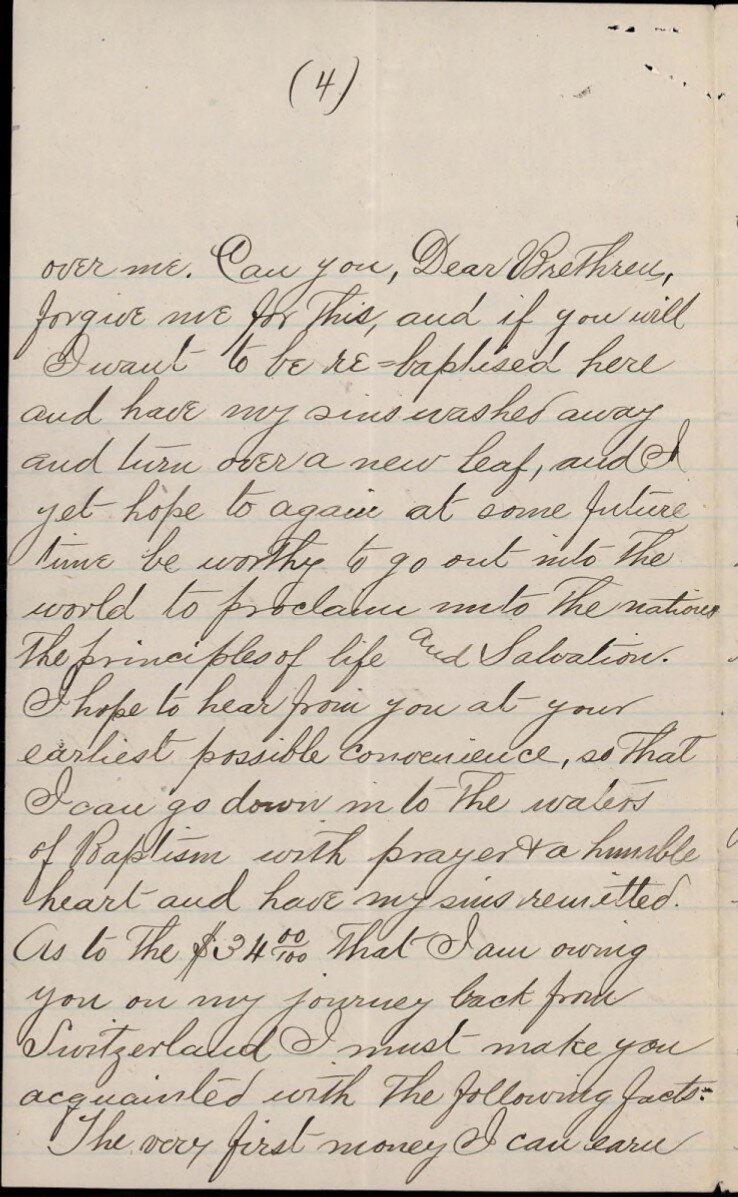 (4)
over me. Can you, Dear Brethren,
forgive me for this, and if you will
I want to be re=baptised here
and have my sins washed away
and turn over a new leaf, and I
yet hope to again at some future
time be worthy to go out into the
world to proclaim unto the nations
the principles of life and Salvation.
I hope to hear from you at your
earliest possible convenience, so that
I can go down in to the waters
of Baptism with prayer & a humble
heart and have my sins remitted.
As to the $34 00/100 that I am owing
you on my journey back from
Switzerland I must make you
acquainted with the following facts:
The very first money I can earn